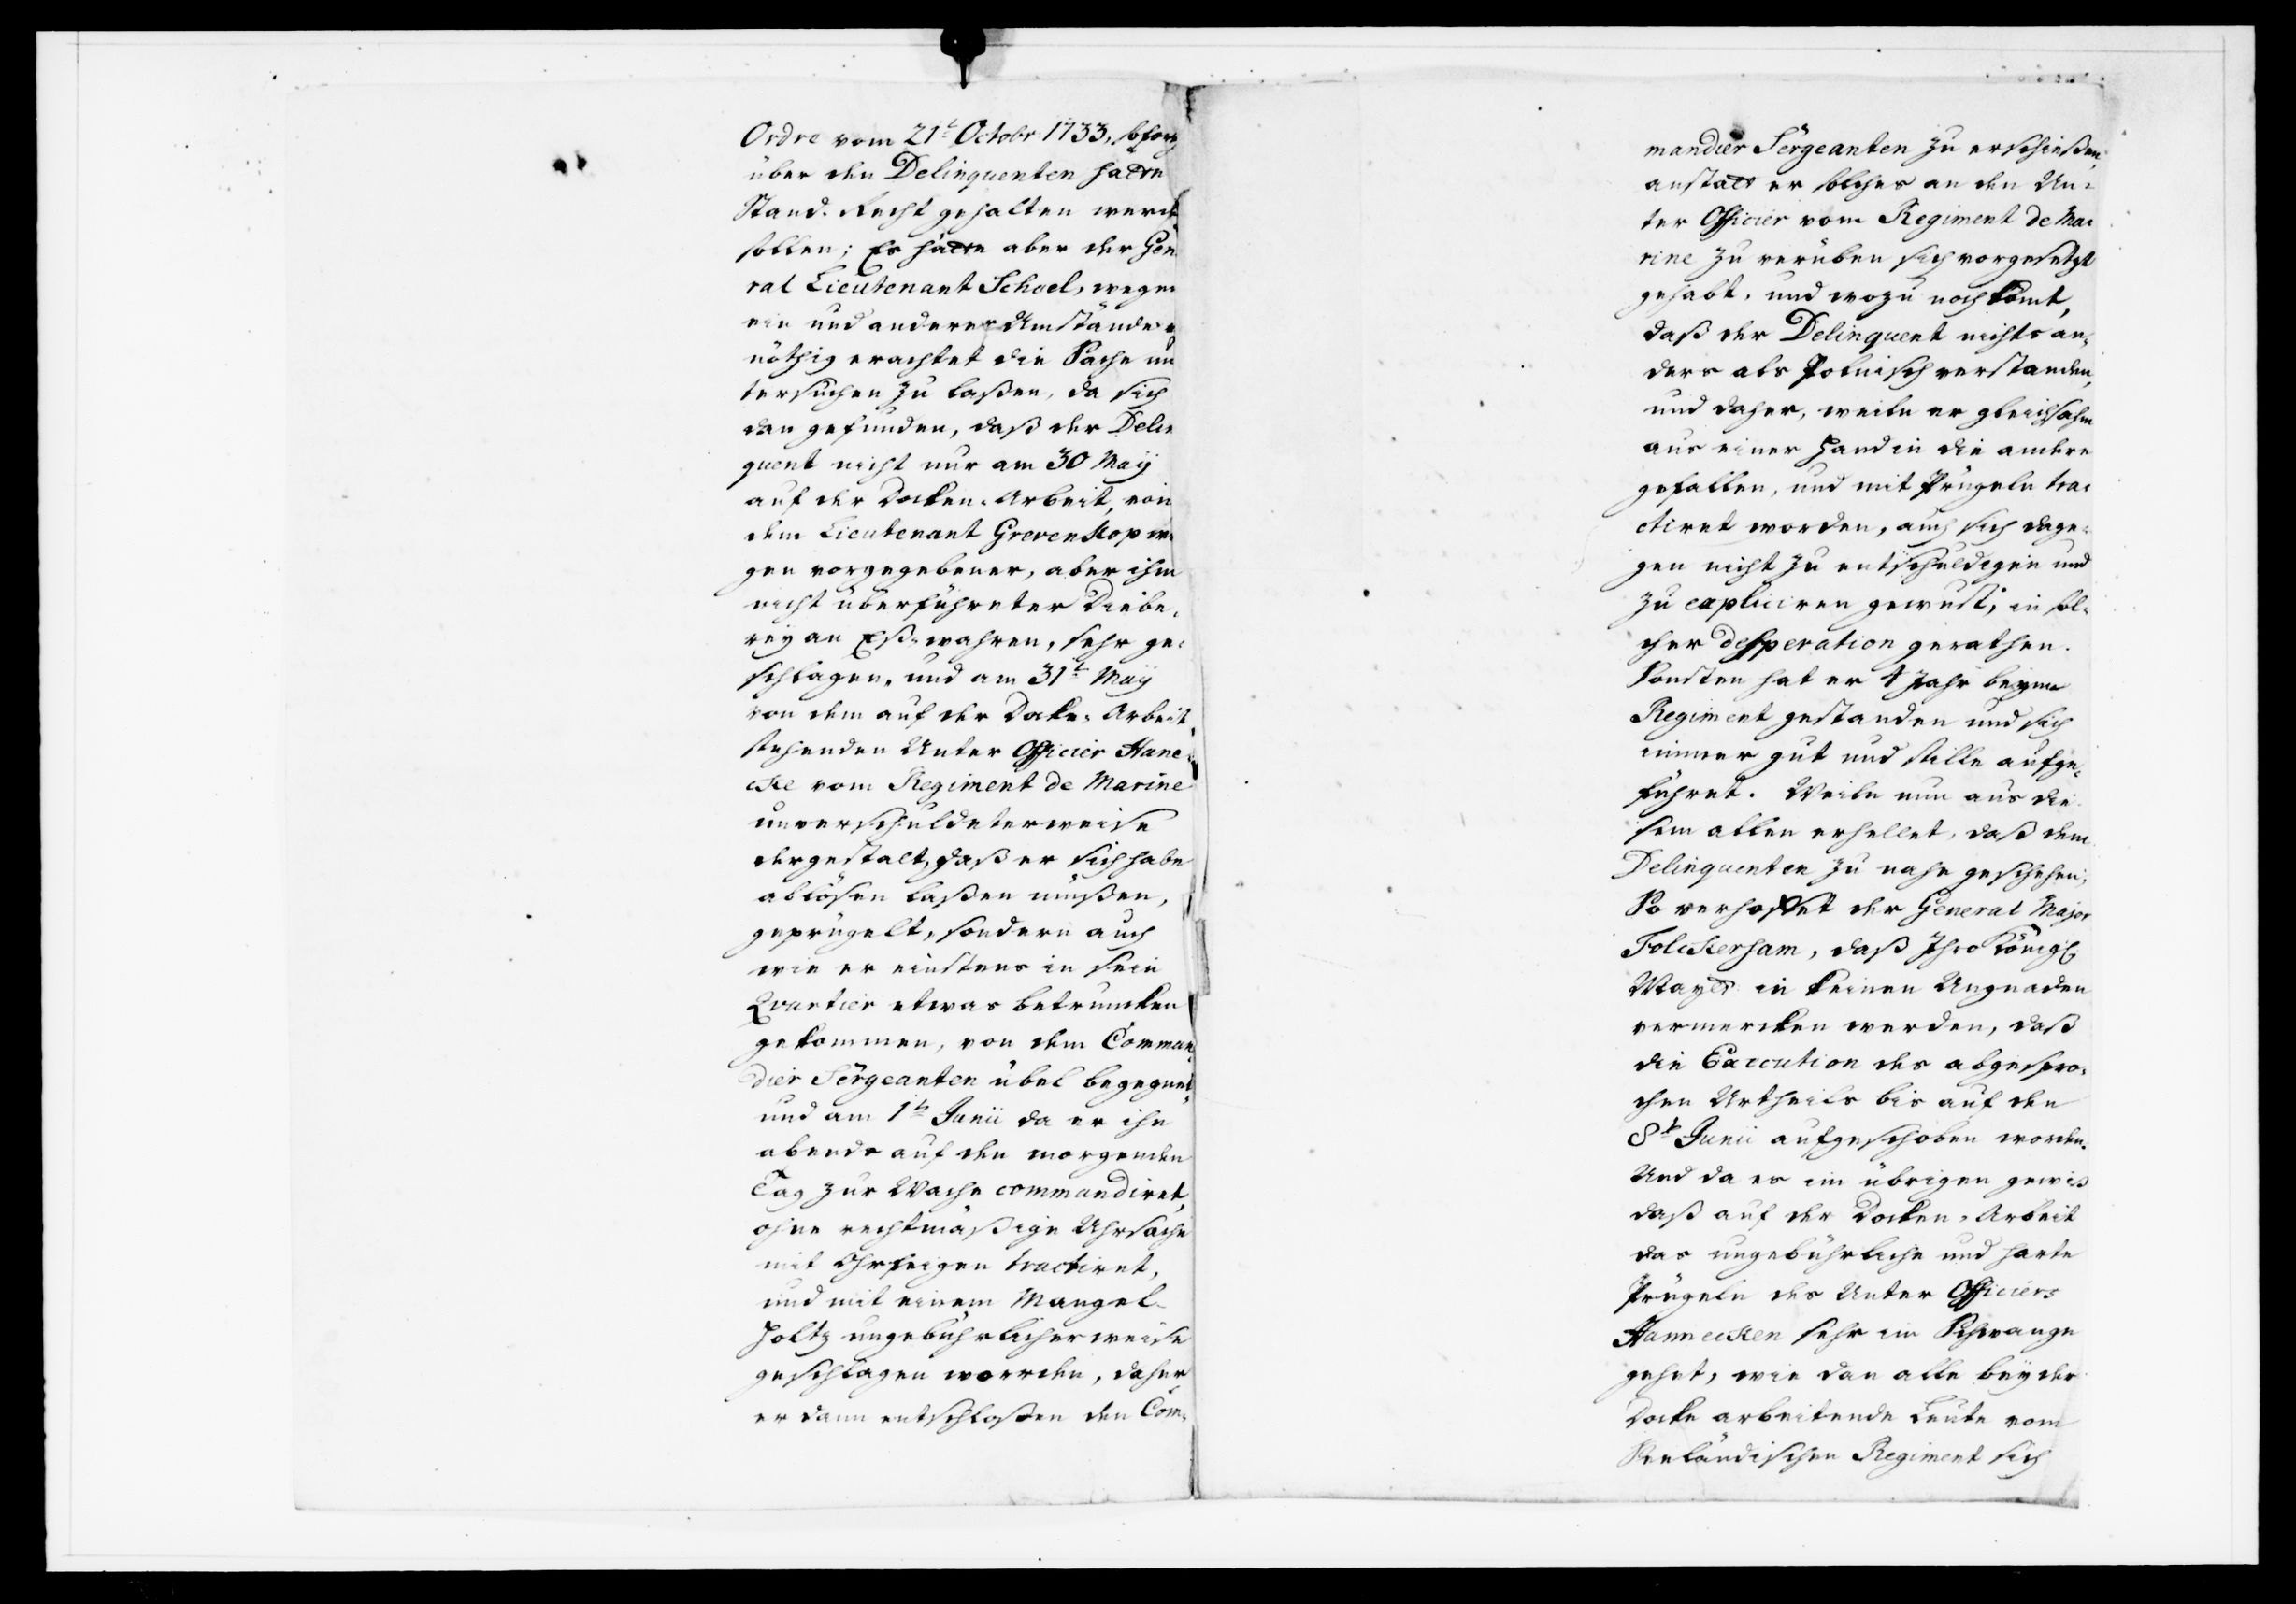 Ordre vom 21t Octobr 1733, sofort
über den Delinquenten hatte
Stand-Recht gehalten werde
sollen; Es hätte aber der Gene
ral Lieutenant Schoel, wegen
ein und anderer Umstände
nöthig erachtet die Sache un
tersuchen zu laßen, da sich
dan gefunden, daß der Delin
quent nicht nur am 30 Maÿ
auf der Docken-Arbeit, von
dem Lieutenant Grevenkop we
gen vorgegebener, aber ihm
nicht überführeter Diebe-
reÿ an Eß-wahren, sehr ge-
schlagen, und am 31t Maÿ
von dem auf der Docke-Arbeit
stehenden Unter Officier Hane-
cke vom Regiment de Marine
unverschuldeterweise
dergestalt, daß er sich habe
ablösen laßen müßen,
geprügelt, sondern auch
wie er einstens in sein
Qvartier etwas betruncken
gekommen, von dem Comman-
dier Sergeanten übel begegnet,
und am 1t Junii da er ihn
abends auf den morgenden
Tag zur Wache commandiret,
ohne rechtmäßige Uhrsache
mit Ohrfeigen tractiret,
und mit einem Mangel-
Holtz ungebührlicherweise
geschlagen worden, daher
er dann entschloßen den Com-
mandier Sergeanten zu erschießen,
anstatt er solches an den Un-
ter Officier vom Regiment de Ma-
rine zu verüben sich vorgesetzt
gehabt, und wozu noch komt,
daß der Delinquent nichts an-
ders als Polnisch verstanden,
und daher, weiln er gleichsahm
aus einer Hand in die andere
gefallen, und mit Prügeln tra-
ctiret worden, auch sich dage-
gen nicht zu entschuldigen und
zu expliciren gewust, in sol-
cher desperation gerathen.
Sonsten hat er 4 Jahr beÿm
Regiment gestanden und sich
immer gut und stille aufge-
führet. Weiln nun aus die-
sem allen erhellet, daß dem
Delinquenten zu nahe geschehen;
So verhoffet der General Major
Folckersham, daß Ihro Königl
Mayt in keinen Ungnaden
vermercken werden, daß
die Execution des abgespro-
chen Urtheils bis auf den
8t Junii aufgeschoben worden.
Und da es im übrigen gewis
daß auf der Docken-Arbeit
das ungebührliche und harte
Prügeln des Unter Officiers
Hannecken sehr im Schwange
gehet, wie dan alle beÿ der
Docke arbeitende Leute vom
Seeländischen Regiment sich